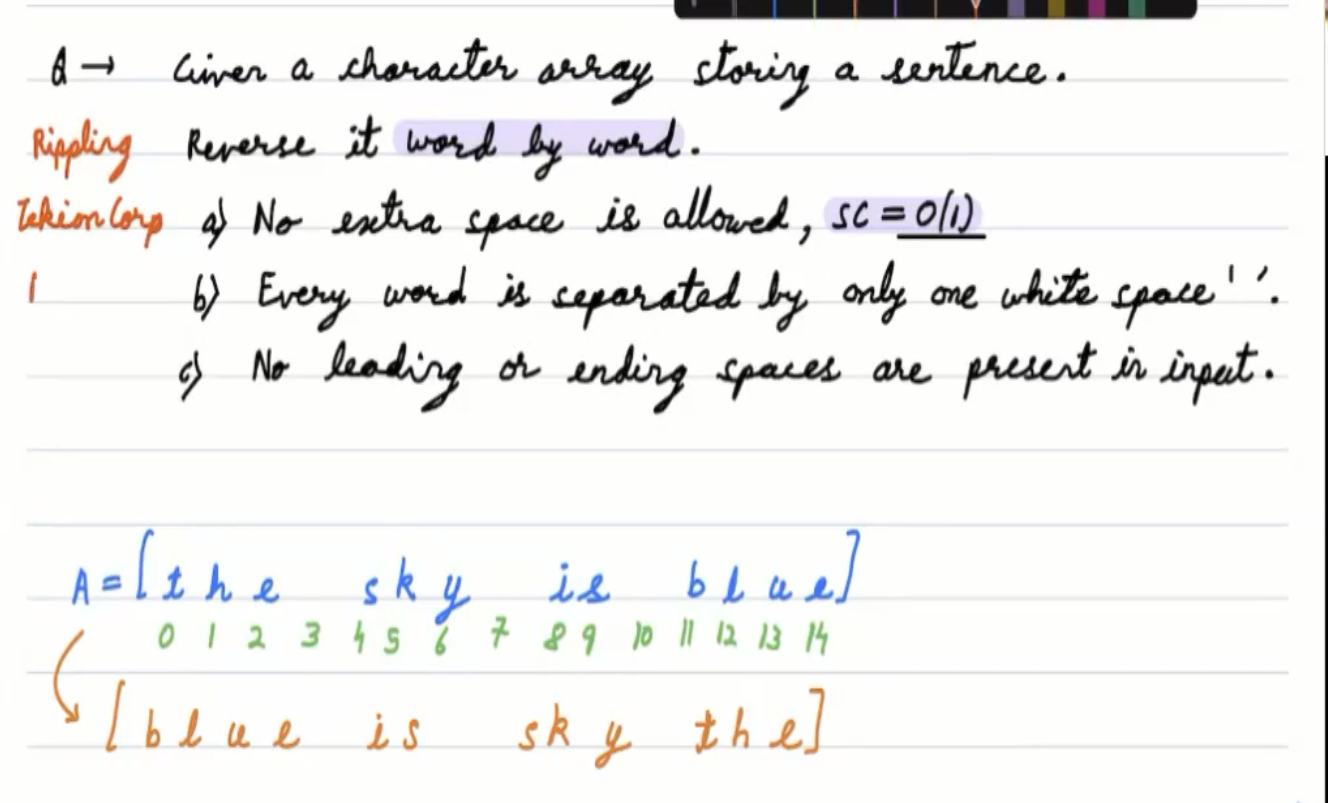 Q → Given a character array storing a sentence.
Rippling Reverse it word by word.
Tekion Corp a) No extra space is allowed, SC = O(1)
b) Every word is separated by only one white space ' '.
c) No leading or ending spaces are present in input.
A = [the sky is blue]
0 1 2 3 4 5 6 7 8 9 10 11 12 13 14
[blue is sky the]